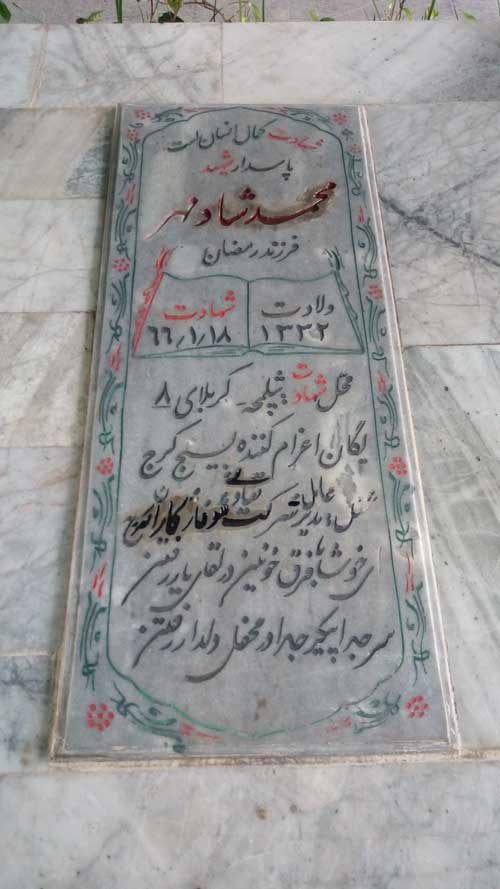 شهادت کمال انسان است
پاسدار شهید
محمد شادمهر
فرزند رمضان
ولادت
۱۳۳۲
شهادت
۶۶٫۱٫۱۸
محل شهادت: شلمچه - کربلای ۸
یگان اعزام کننده بسیج کرج
شغل: مدیر عامل شرکت تعاونی
ای خوشا با فرق خونین در لقای یار رفتن
سر جدا پیکر جدا در محفل دلدار رفتن